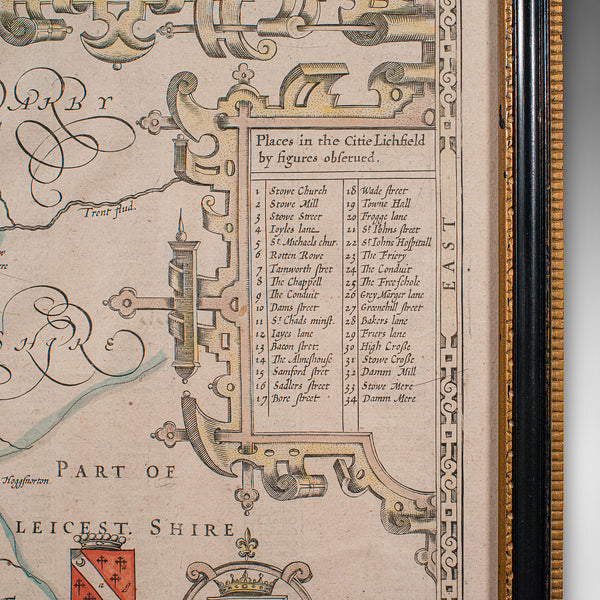 ARBY
Trent flud.
SHIRE
Hoggsnorton
PART OF
LEICEST. SHIRE
EAST
Places in the Citie Lichfield
by figures obserued.
1 Stowe Church
2 Stowe Mill
3 Stowe Street
4 Ioyles lane
5 St. Michaels chur.
6 Rotten Rowe
7 Tamworth stret
8 The Chappell
9 The Conduit
10 Dams street
11 St. Chads minst.
12 lane
13 Bacon stret
14 The Almeshouse
15 Samford stret
16 Sadlers street
17 Bore street
18 Wade street
19 Towne Hall
20 Frogge lane
21 St Iohns street
22 St Iohns Hospitall
23 The Friery
24 The Conduit
25 The Freeschole
26 Grey lane
27 Greenehill street
28 Bakers lane
29 Friers lane
30 High Croße
31 Stowe Croße
32 Damm Mill
33 Stowe Mere
34 Damm Mere